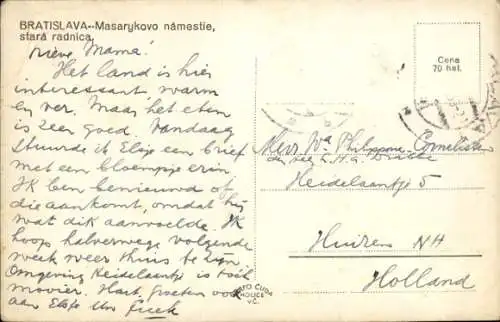 BRATISLAVA--Masarykovo námestie,
stará radnica.
Lieve Mama!
Het land is hier
interessant, warm
en ver. Maar het eten
is zeer goed. Vandaag
stuurde ik Elsje een brief
met een bloempje erin.
Ik ben benieuwd of
die aankomt, omdat hij
wat dik aanvoelde. Ik
hoop halverwege volgende
week weer thuis te zijn.
Omgeving Heidelaantje is toch
mooier. Hart. groeten ook
aan Elsje Uw
Cena
70 hal.
Mevr. Wa Philippona-Cornelissen
Heidelaantje 5
Huizen NH
Holland
FOTO ČUDA
HOLICE
VČ.